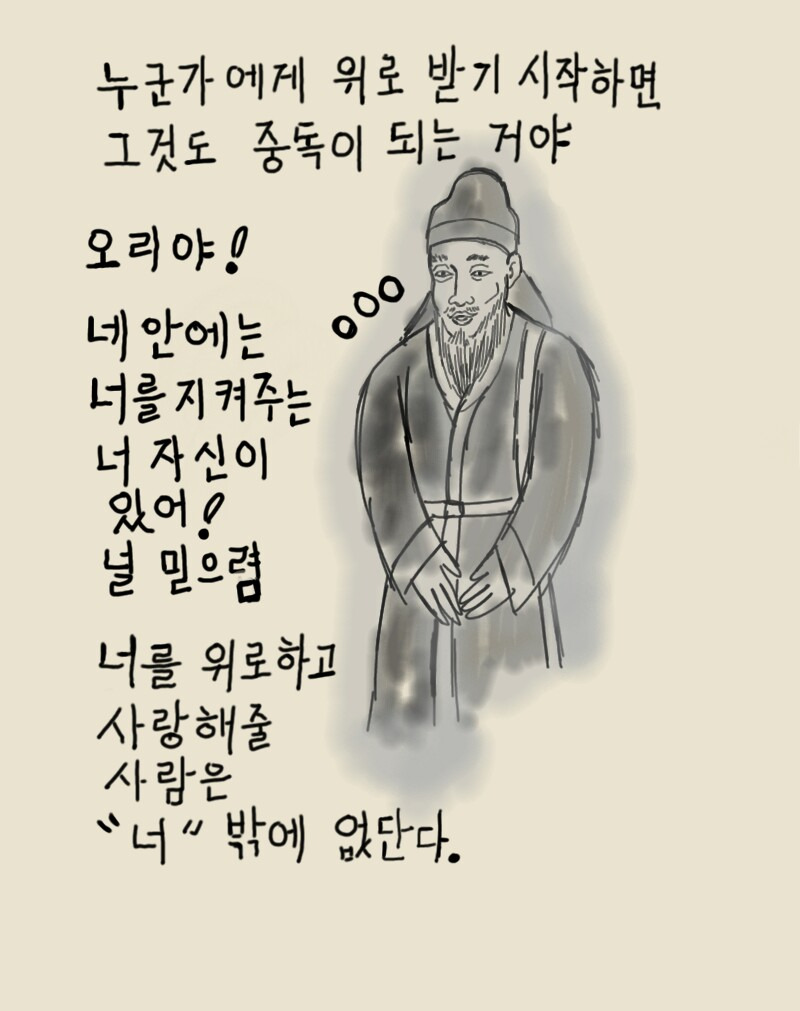 누군가에게 위로 받기 시작하면
그것도 중독이 되는 거야
오리야!
네 안에는
너를 지켜주는
너 자신이
있어!
널 믿으렴
너를 위로하고
사랑해줄
사람은
"너" 밖에 없단다.